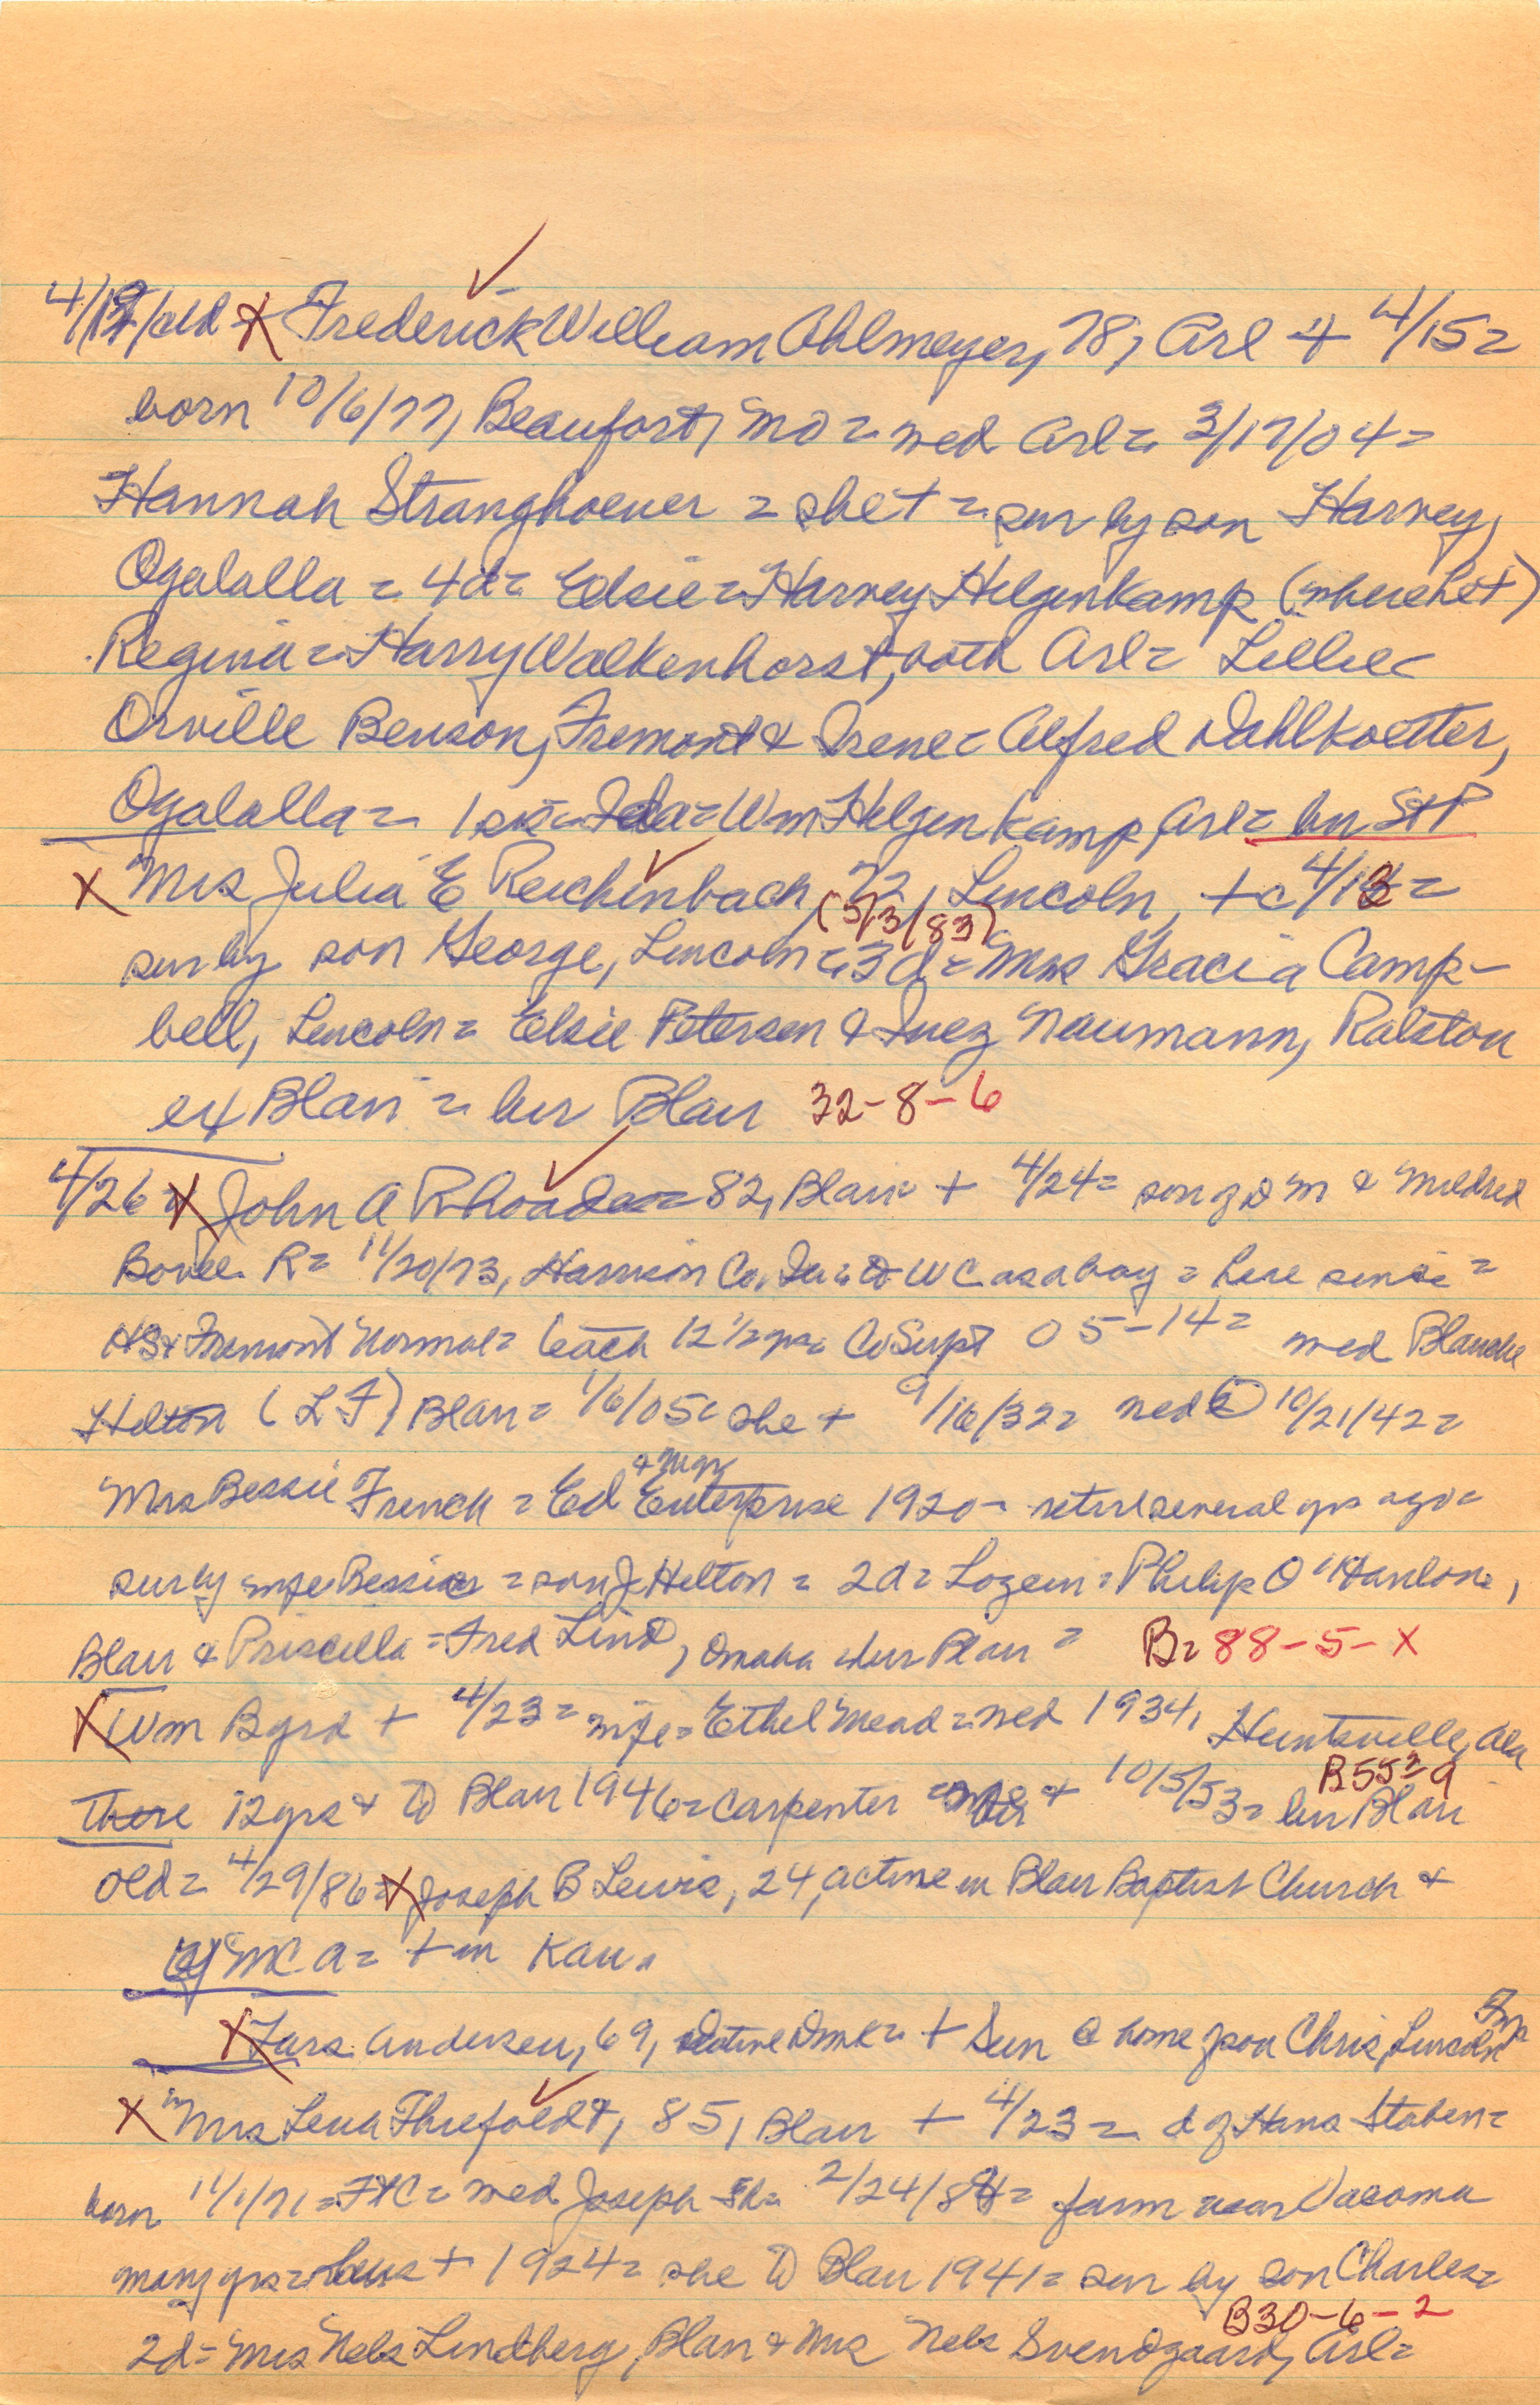 4/19/ old X Frederick William Ahlmeyer, 78, Arl + 4/15 =
born 10/6/77, Beaufort, MO = med Arl = 3/17/04 =
Hannah Stranghoener = she + = sur by son Harvey,
Ogalalla = 4d = Edsie = Harvey Helgenkamp (
Regina = Harry Walkenhorst, both Arl = Lillie =
Orville Benson, Fremont & Irene = Alfred Dahlkoetter,
Ogalalla = 1 sis = Ida = Wm Helgenkamp, Arl = bur St P
X Mrs Julia E Reichenbach, 72, Lincoln, + c 4/13 =
(5/3/83)
sur by son George, Lincoln = 3d = Mrs Gracia Camp-
bell, Lincoln = Elsie Petersen & Inez Naumann, Ralston
ex Blair = bur Blair 32-8-6
4/26 = X John A Rhoades = 82, Blair = + 4/24 = son of D M & Mildred
R = 11/20/73, Harrison Co, Ia = to WC as a boy = here since =
HS & Fremont Normal = teach 12 1/2 yrs = Co Supt 05-14 = med Blanche
Hilton (L F) Blair = 1/6/05 = she + 9/16/32 = med (2) 10/21/42 =
& Mgr
Mrs Bessie French = Ed Enterprise 1920 - retired several yrs ago =
sur by wife Bessie = son J Hilton = 2d = = Philip O'Hanlon,
Blair & Priscilla = Fred Lind, Omaha = bur Blair = B = 88-5-X
X Wm Byrd + 4/23 = wife = Ethel Mead = med 1934, Huntsville, Ala
B55=9
there 12 yrs & to Blair 1946 = carpenter = + 10/5/53 = bur Blair
old = 4/29/86 = X Joseph B Lewis, 24, active in Blair Baptist Church &
YMCA = + in Kan.
X Lars Andersen, 69, native Dmk = + Sun @ home of son Chris, Lincoln Twp
X Mrs Lena Thiefoldt, 85, Blair + 4/23 = d of Hans Staben =
born 11/1/71 = Ft C = med Joseph Th = 2/24/84 = farm near Vacoma
many yrs = hus + 1924 = she to Blair 1941 = sur by son Charles =
B30-6-2
2d = Mrs Nels Lindberg, Blair & Mrs Nels Svendgaard, Arl =